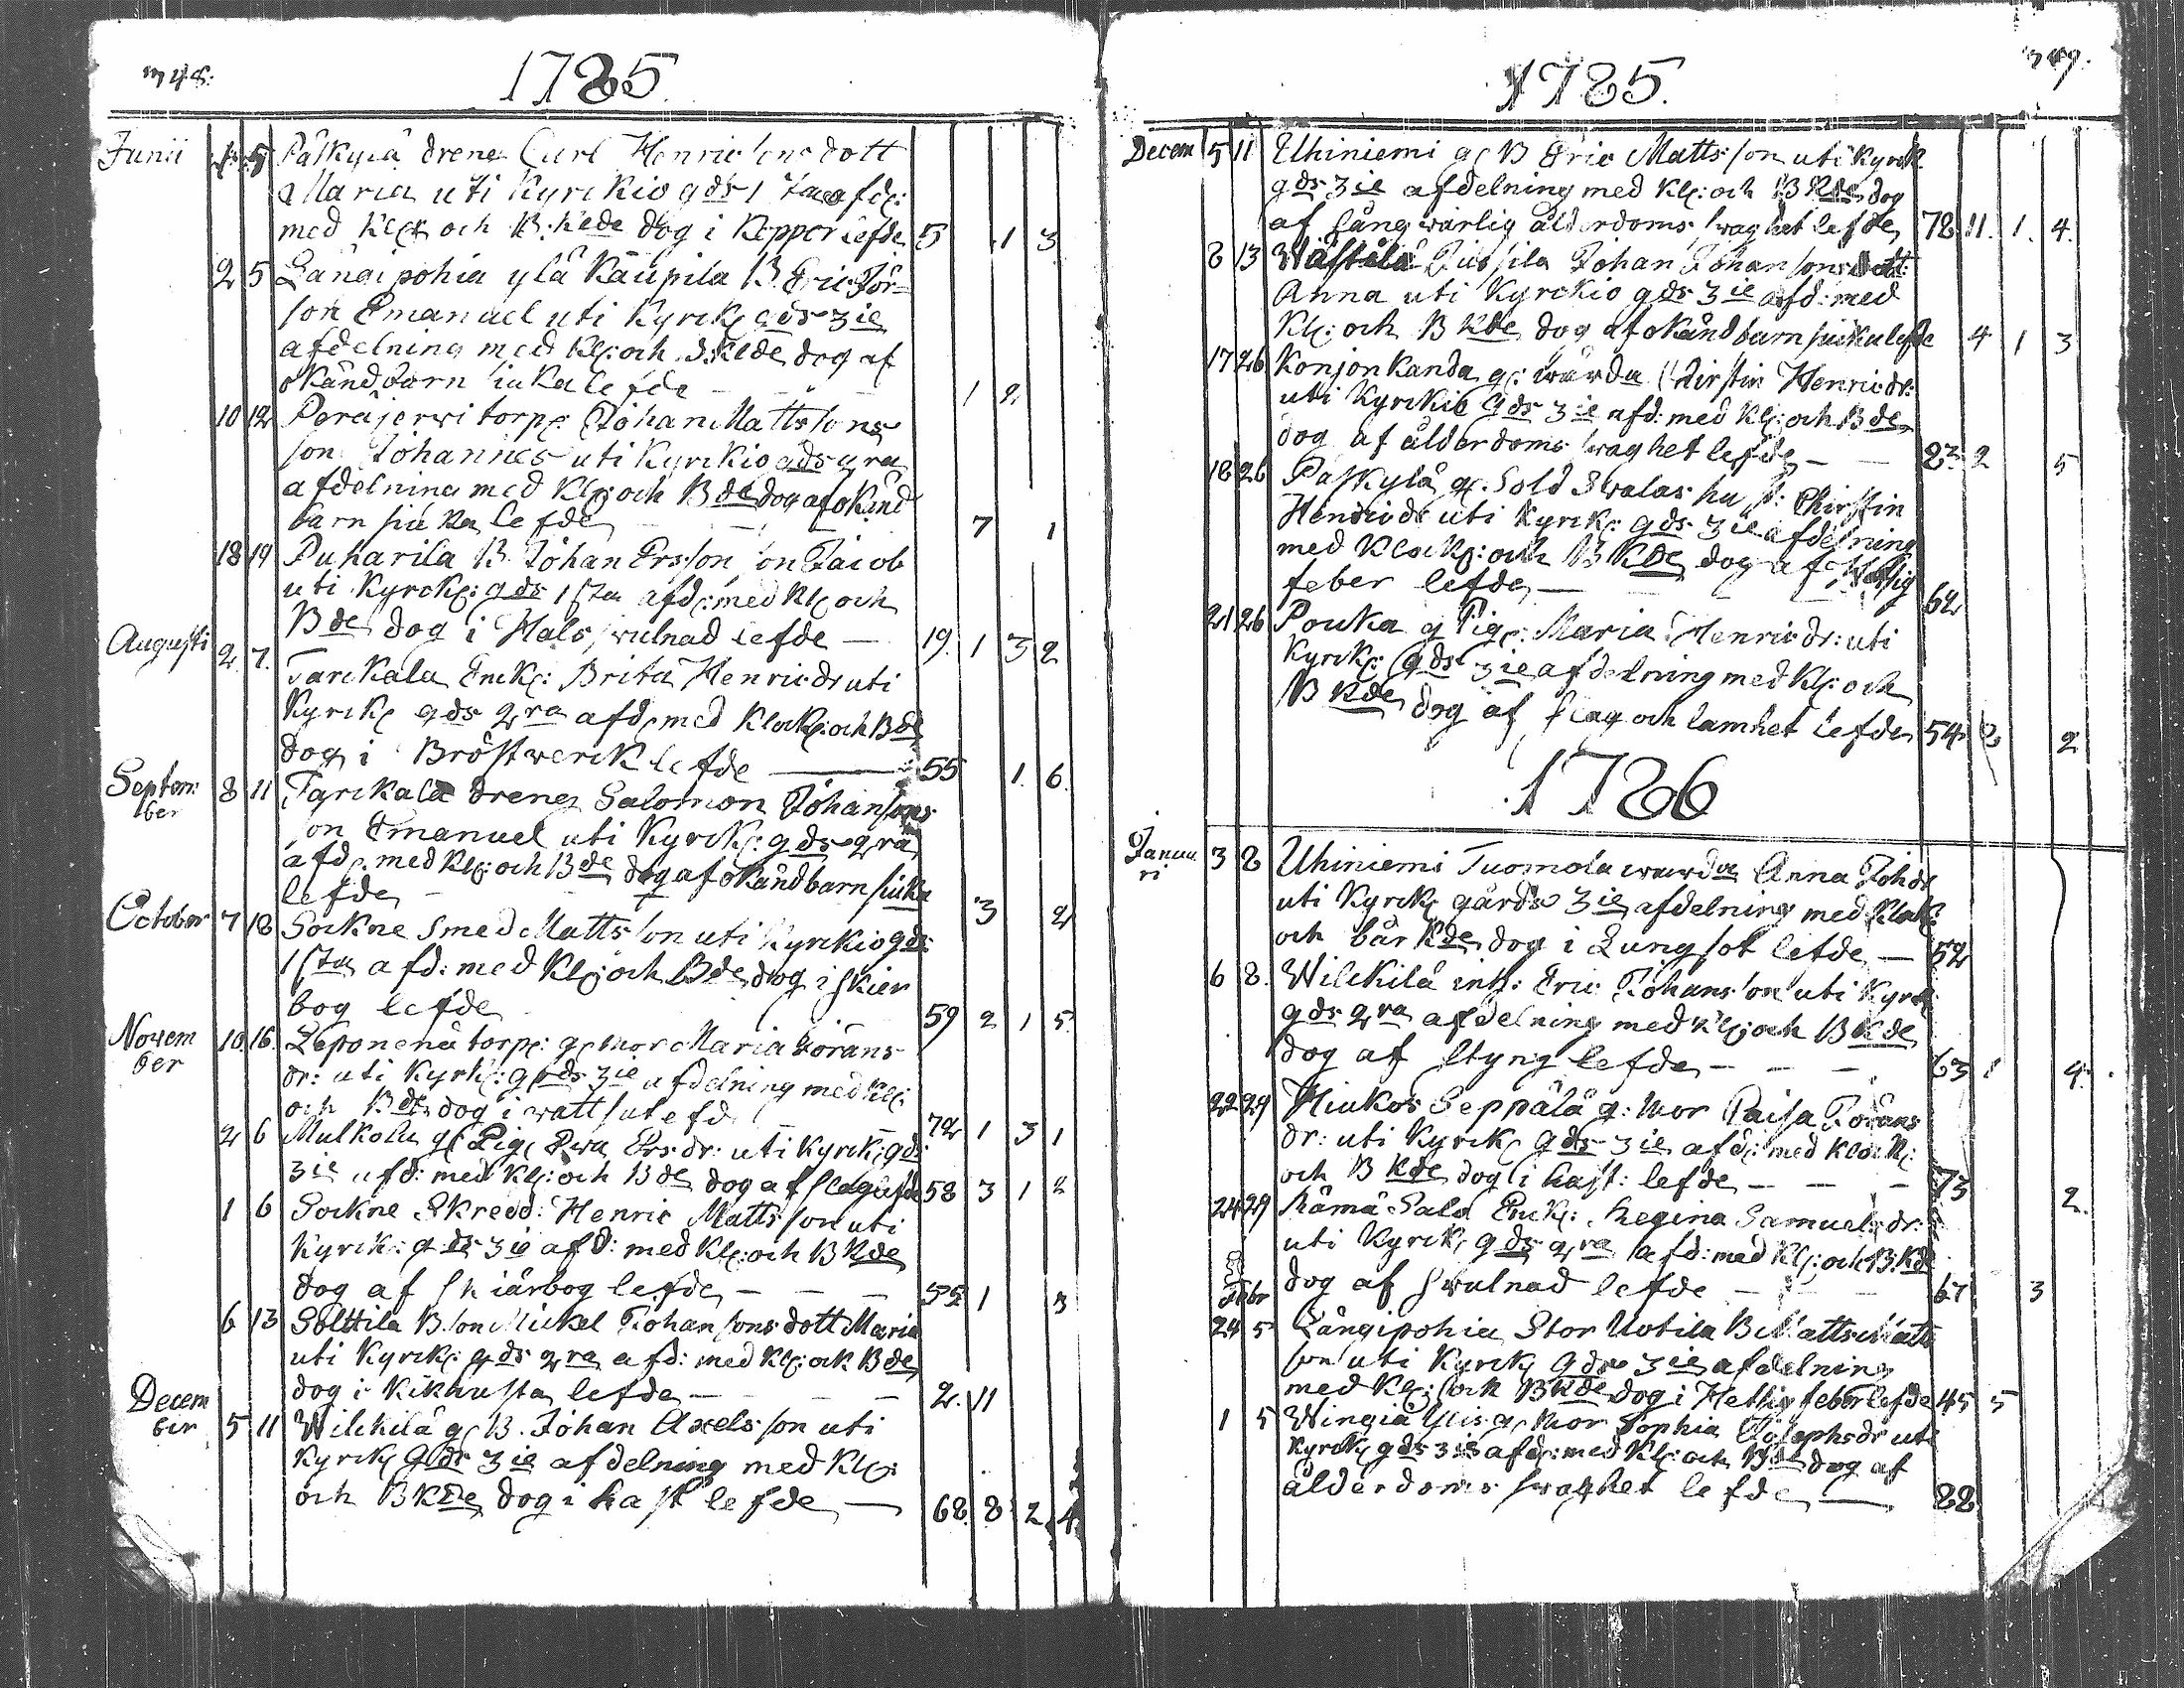 1785.
Junii 5 Paskylä dreng Carl Henricsons dott
Maria uti Kyrckio gds 1 sta afd:
med Klck och B: Kde dog i Kopper lefde 5 1 3
2 5 Längipohia ylä Kaupila B Eric Jör-
son Emanuel uti Kyrck gds 3 ie
afdelning med Kl: och B Kde dog af
okänd barn siuka lefde 1 2
10 12 Peräjerwi torp: Johan Mattssons
son Johannes uti Kyrckio gds 2 ra
afdelning med Kl: och B de dog af okänd
barn siuka lefde 7 1
18 19 Puharila B. Johan Ersson son Jacob
uti Kyrck: gds 1 sta afd: med Kl: och
B de dog i Hals swulnad lefde — 19 1 3 2
Augusti 2 7. Tarckala Enck: Brita Henricdr uti
Kyrck gds 2 ra afd: med Klock: och B de
dog i Bröstwerck lefde — 55 1. 6.
Septem
ber 8 11 Tarckala dreng Salomon Johansons
son Emanuel uti Kyrck: gds 2 ra
afd: med Kl: och B de dog af okänd barn siuka
lefde 3 2
October 7 18 Sockne Smed Mattsson uti Kyrckio gds
1 sta afd: med Kl: och B de dog i skier
bog lefde 59 2 1 5.
Novem
ber 10. 16. Leponenä torp: g: mor Maria Jörans
dr: uti Kyrk: gds 3 ie afdelning med Kl:
och B de dog i wattsut lefd 72 1 3 1
2 6 Mulkola g: Pig: Ewa Ersdr: uti Kyrck: gds
3 ie afd: med Kl: och B de dog af slag lefde 58 3 1 2
1 6 Sockne Skredd: Henric Mattsson uti
Kyrck: gds 3 ie afd: med Kl: och B Kde
dog af skiärbog lefde — — — 55 1 3
6 13 Solttila B. son Mickel Johansons dott Maria
uti Kyrck: gds 2 ra afd: med Kl: och B de
dog i Kikhusta lefde — — — 2. 11
Decem
ber 5 11 Wilckilä g: B. Johan Axelsson uti
Kyrck gds 3 ie afdelning med Kl:
och B Kde dog i hast lefde — 68. 8 2 4
1785.
Decem 5 11 Uhiniemi g: B Eric Mattsson uti Kyrck
gds 3 ie afdelning med Kl: och B Kde dog
af långwarlig ålderdoms swaghet lefde 78 11. 1. 4.
8 13 Wästilä Jussila Johan Johansons dott:
Anna uti Kyrckio gds 3 ie afd: med
Kl: och B Kde dog af okänd barn siuka lefde 4 1 3
17 26 Konjonkanda g: wärda Chirstin Henricdr:
uti Kyrckio gds 3 ie afd: med Kl: och B de
dog af ålderdoms swaghet lefde — — 83 2 5
18 26 Paskylä g: Sold Swalas hust: Chirstin
Henricdr uti Kyrck: gds 3 ie afdelning
med Klock: och B Kde dog af Hettig
feber lefde — 62
21 26 Pouka g Pig: Maria Henricdr: uti
Kyrck: gds 3 ie afdelning med Kl: och
B Kde dog af slag och lamhet lefde 54 2 2
1786
Janua
ri 3 8 Uhiniemi Tuomola wärda Anna Johdr
uti Kyrck gårds 3 ie afdelning med Klock:
och bår Kde dog i Lungsot lefde — 52
6 8. Wilckilä inh: Eric Johansson uti Kyrck
gds 2 ra afdelning med Kl: och B Kde
dog af styng lefde — — — 63 1 4.
22 29 Hiukos Seppälä g: mor Caisa Jörans
dr: uti Kyrck gds 3 ie afd: med Klock:
och B Kde dog i hast: lefde — — — 73 2.
24 29 Rämä-Sala Enck: Regina Samuelsdr:
uti Kyrck gds 2 ra afd: med Kl: och B. Kde
dog af swulnad lefde — 67 3
Febr
24 5 Längipohia Stor Uotila B Matts Matts
son uti Kyrck gds 3 ie afdelning
med Kl: och B Kde dog i Hettig feber lefde 45 5
1 5 Wingiä g: mor Sophia Josephsdr uti
Kyrck gds 3 ie afd: med Kl: och B de dog af
ålderdoms swaghet lefde — 88